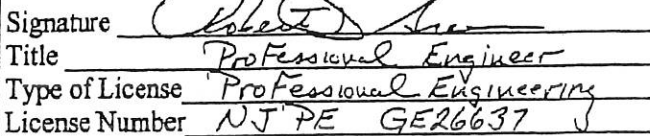 Signature Robert J
Title Professional Engineer
Type of License Professional Engineering
License Number NJ PE GE26637